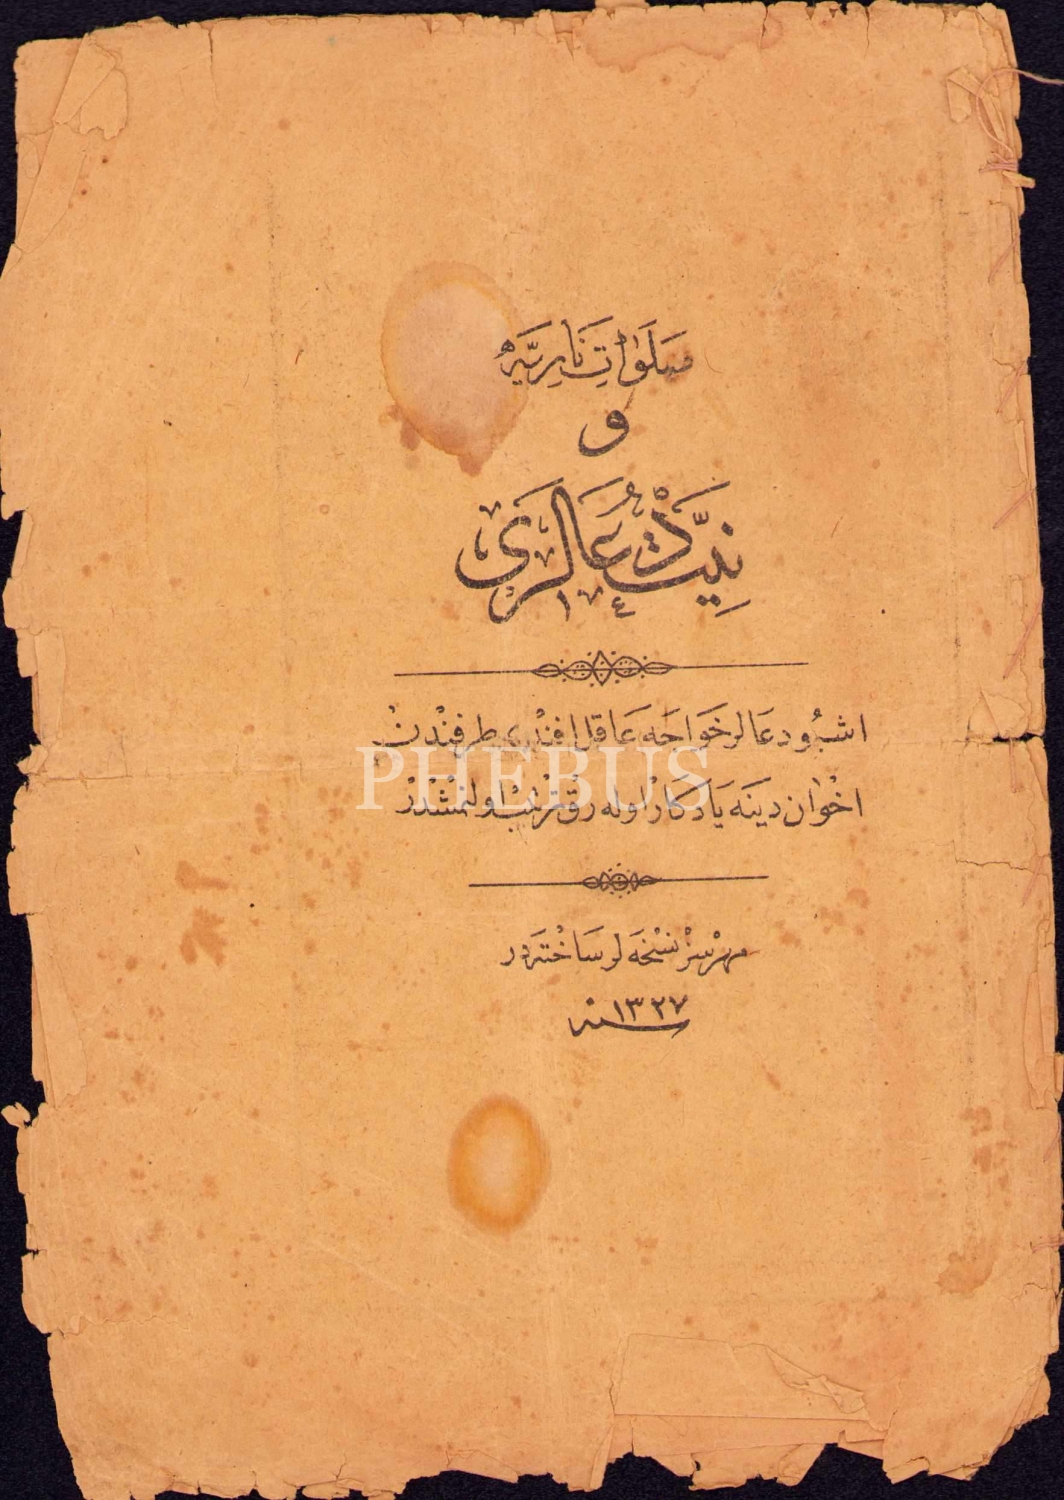 صَلَوٰاتِ نَارِيَّه
و
نِيَّتْ دُعَالَرى
اشبُو دعَالر خَواجَه عَاقل افَنْدى طرفِندْن
اخْوٰان دينَه يَادكَارْ اولَه رقْ ترتيبْ اولنمْشْدرْ
مهرْسزْ نسْخَه لر سَاخْتَه در
سنه ١٣٢٧
PHEBUS